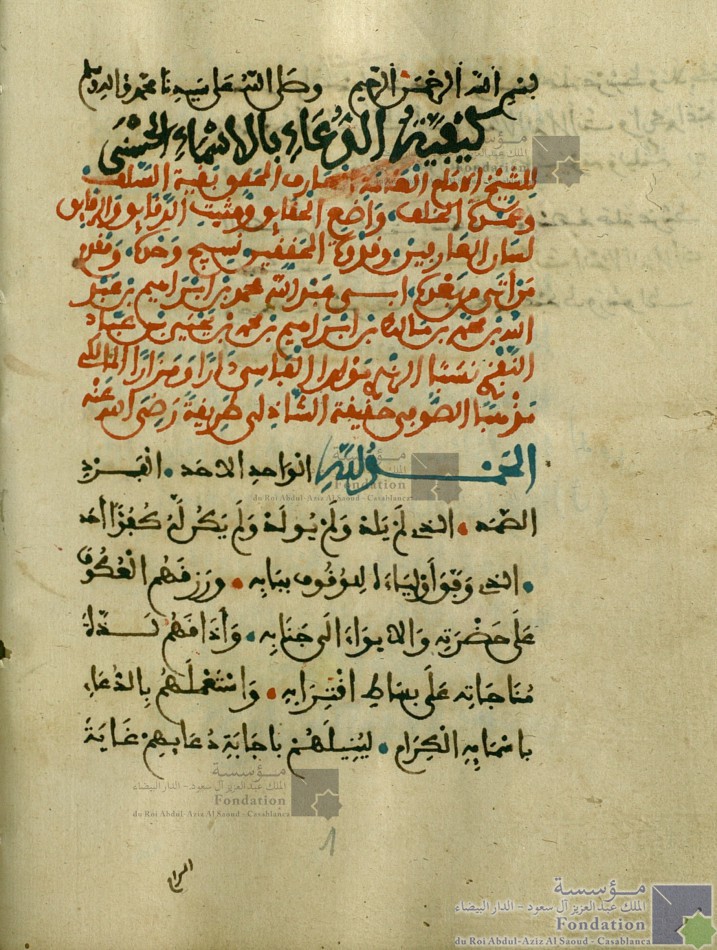 بسم الله الرحمن الرحيم وصلى الله على سيدنا محمد واله وسلم
كيفية الدعاء بالاسماء الحسنى
للشيخ الامام العلامة العارف المحقق بقية السلف
وعمدة الخلف واضع الحقايق ومثبت الدقايق والرقايق
لسان العارفين وقدوة المحققين نسيج وحده وقدوة
من اتى من بعده ابي عبد الله محمد بن ابراهيم بن عبد
الله بن محمد بن مالك بن ابراهيم بن محمد بن يحيى بن عباد
النفزي نسبا الرندي مولدا الفاسي دارا ومزارا المالكي
مذهبا الصوفي حقيقة الشاذلي طريقة رضي الله عنه
الحمد لله الواحد الاحد • الفرد
الصمد • الذي لَمْ يَلِدْ وَلَمْ يُولَدْ وَلَمْ يَكُن لَهُ كُفُؤًا أحد
• الذي وَفَّقَ أَوْلِيَاءَهُ لِلوُقُوف بِبَابِه • وَرَزَقَهُم الْعُكُوفَ
عَلَى حَضْرَتِهِ وَالايوَاءَ الَى جَنَابِه • وَأَذَاقَهُمْ لَذَّةَ
مُنَاجَاتِه عَلَى بِسَاطِ اقْتِرَابِهِ • وَاسْتَعْمَلَهُمْ بِالدُّعَاءِ
بِاسْمَايِهِ الْكِرَام • لِيُنِيلَهُمْ بِاجَابَةِ دُعَايِهِمْ غَايَةَ
المرام
1
مؤسسة
الملك عبد العزيز آل سعود - الدار البيضاء
Fondation
du Roi Abdul-Aziz Al Saoud - Casablanca